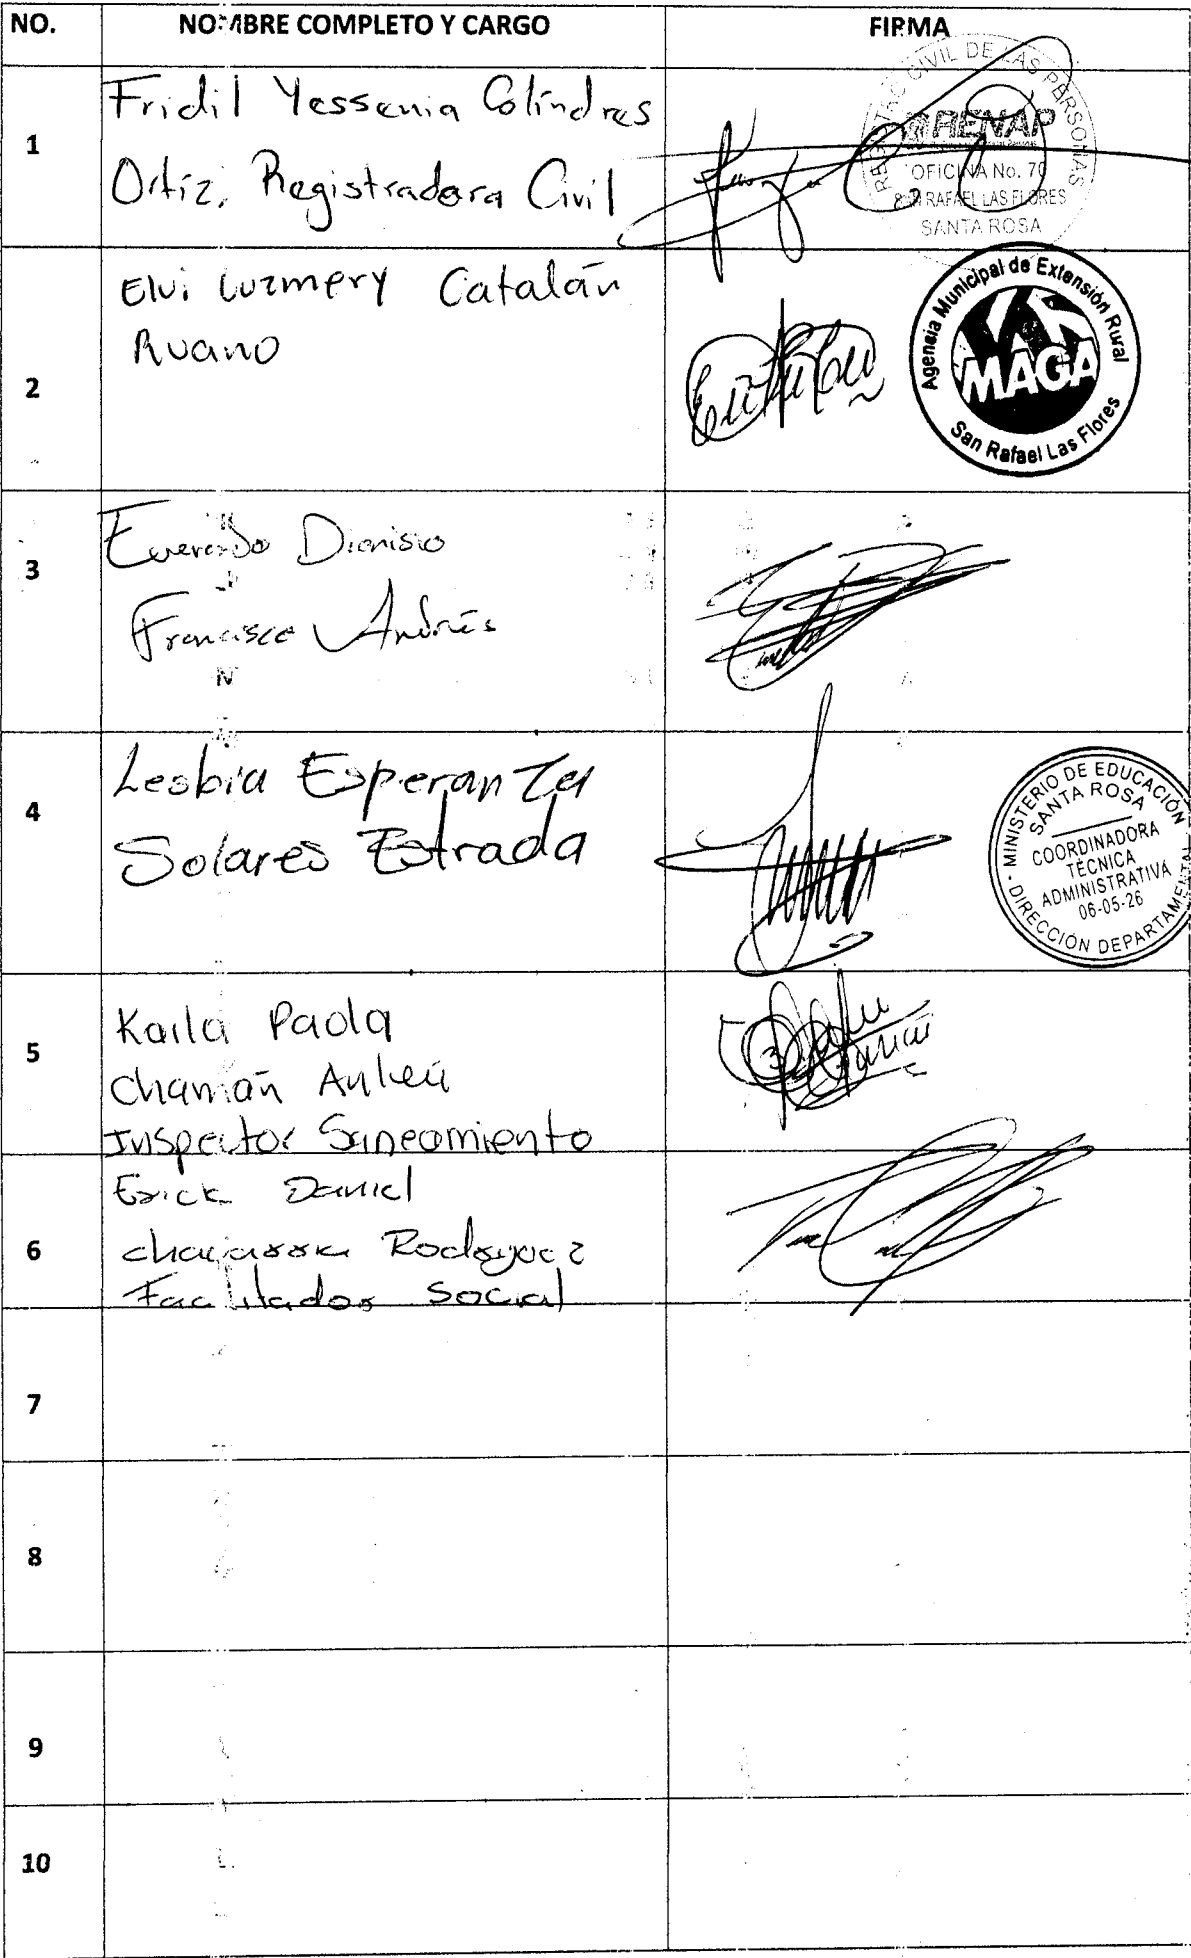 NO. NOMBRE COMPLETO Y CARGO FIRMA
1
Fridil Yessenia Colindres
Ortíz, Registradora Civil
REGISTRO CIVIL DE LAS PERSONAS
RENAP
OFICINA No. 70
SAN RAFAEL LAS FLORES
SANTA ROSA
2
Elvi Luzmery Catalán
Ruano
Agencia Municipal de Extensión Rural
MAGA
San Rafael Las Flores
3
Everardo Dionisio
Francisco Andrés
4
Lesbia Esperanza
Solares Estrada
MINISTERIO DE EDUCACIÓN
SANTA ROSA
COORDINADORA
TÉCNICA
ADMINISTRATIVA
06-05-26
DIRECCIÓN DEPARTAMENTAL
5
Karla Paola
Chamán
Inspector Saneamiento
6
Erick Daniel
Rodriguez
Facilitador Social
7
8
9
10